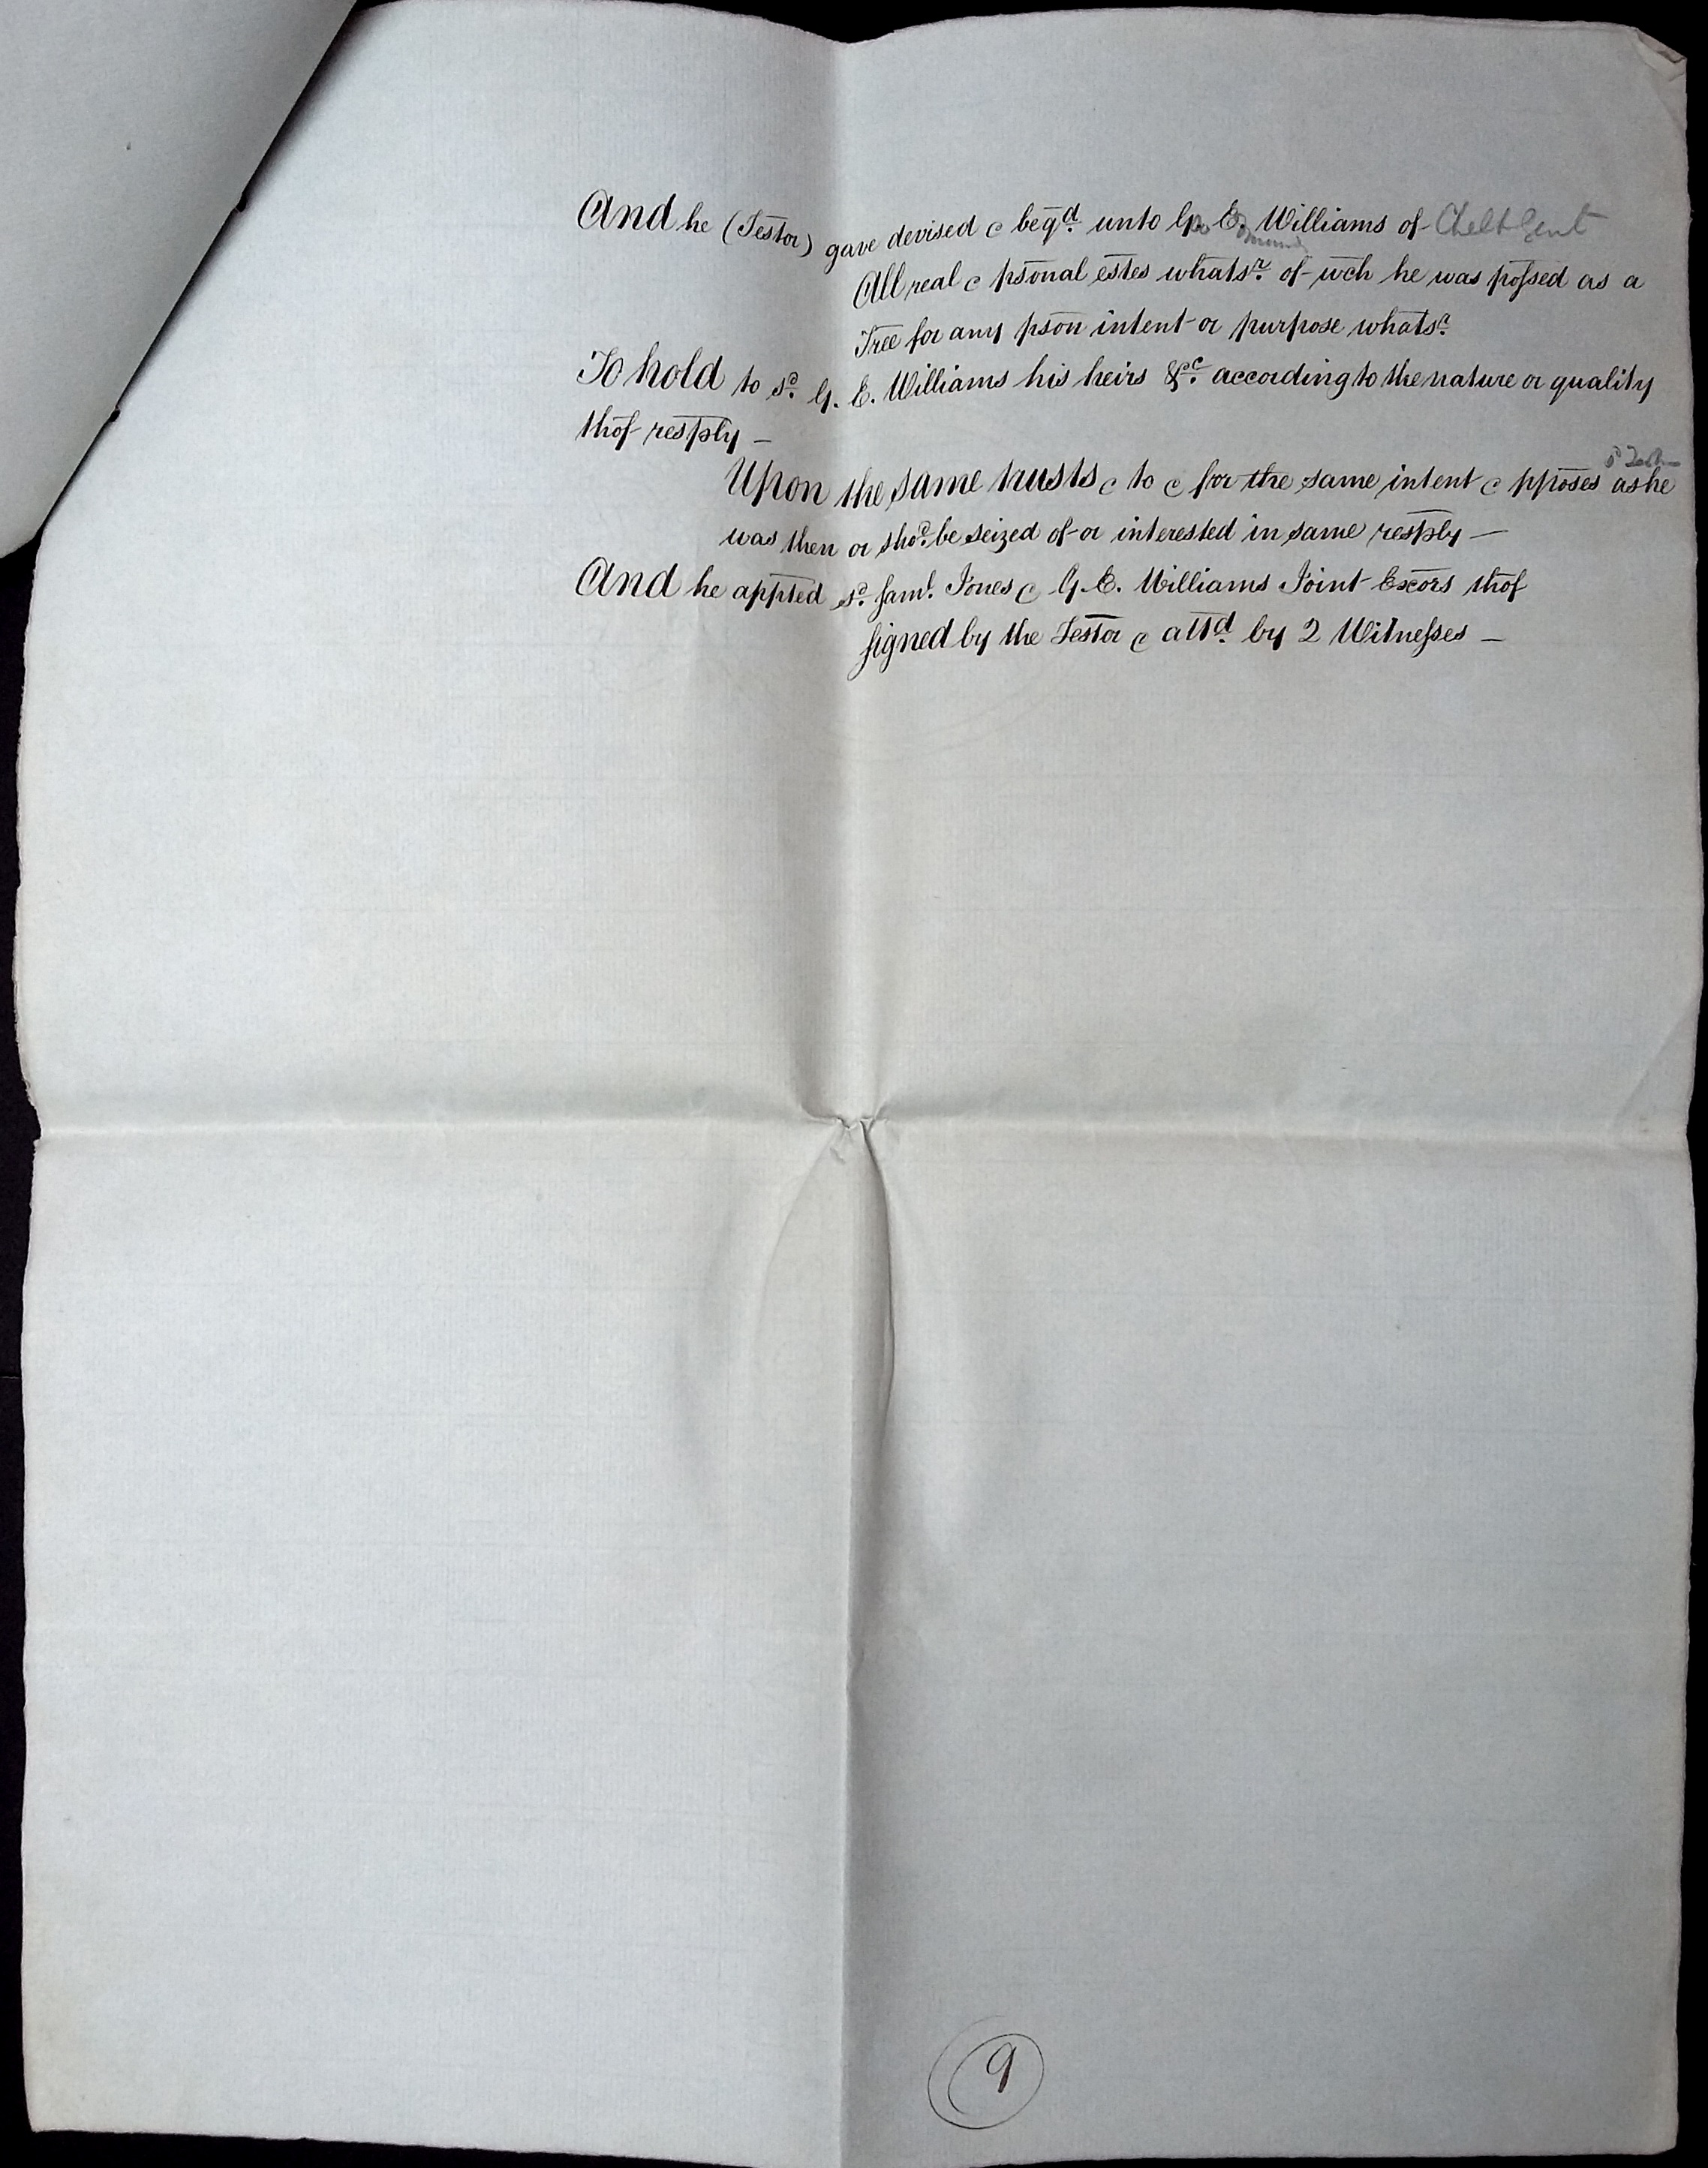 And he (Testor) gave devised & beqd. unto Geo Edmund Williams of Chelt Gent
All real & psonal estes whatsr. of wch he was possed as a
Tree for any pson intent or purpose whatsr.
To hold to sd. G. E. Williams his heirs &c. according to the nature or quality
thof resply —
Upon the same trusts & to & for the same intent & pposes as he sd Testor
was then or shod. be seized of or interested in same resply —
And he appted sd. Saml. Jones & G. E. Williams Joint Excors thof
Signed by the Testor & attd. by 2 Witnesses —
9